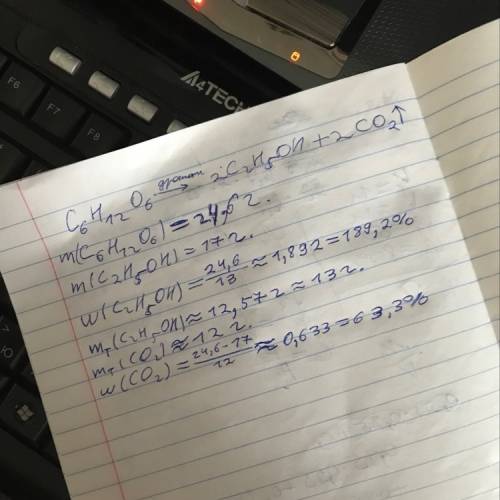 A4TECH
F6
F7
F8
C₆H₁₂O₆ → 2C₂H₅OH + 2CO₂↑
m(C₆H₁₂O₆) = 24,6 г.
m(C₂H₅OH) = 17 г.
W(C₂H₅OH) = 24,6/13 ≈ 1,892 = 189,2%
mт(C₂H₅OH) ≈ 12,572 ≈ 13 г.
mт(CO₂) ≈ 12 г.
W(CO₂) = (24,6-17)/12 ≈ 0,633 = 63,3%
Ю